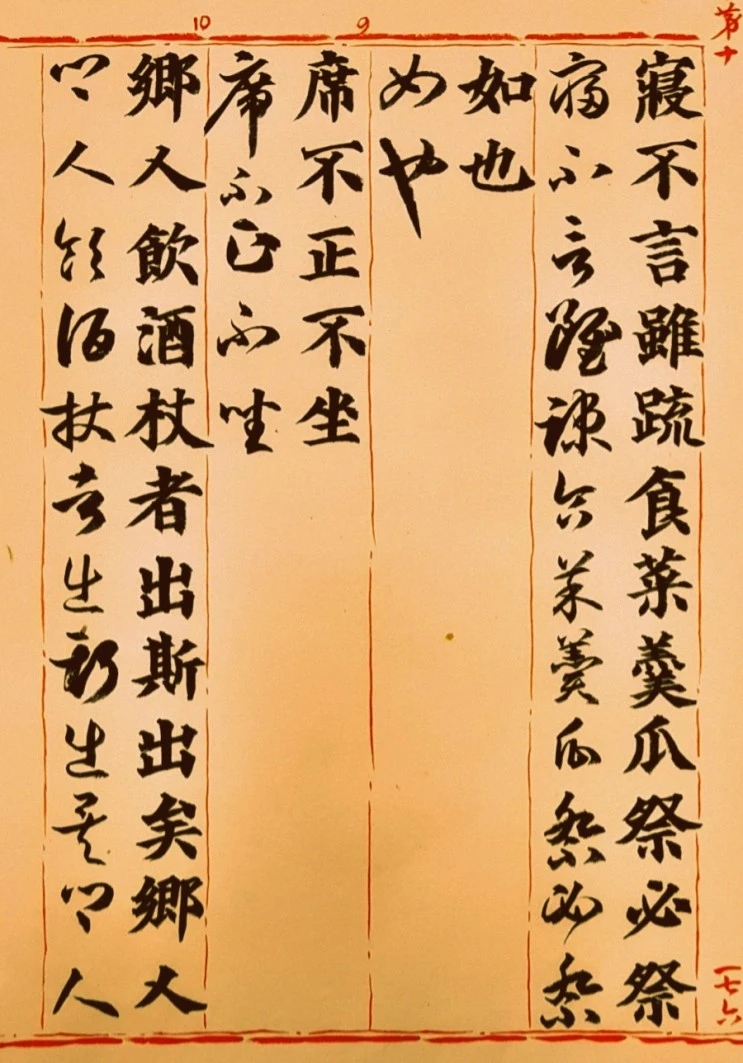 第十
一七六
寢不言雖疏食菜羹瓜祭必祭
寢不言雖疏食菜羹瓜祭必祭
如也
如也
9
席不正不坐
席不正不坐
10
鄉人飲酒杖者出斯出矣鄉人
鄉人飲酒杖者出斯出矣鄉人